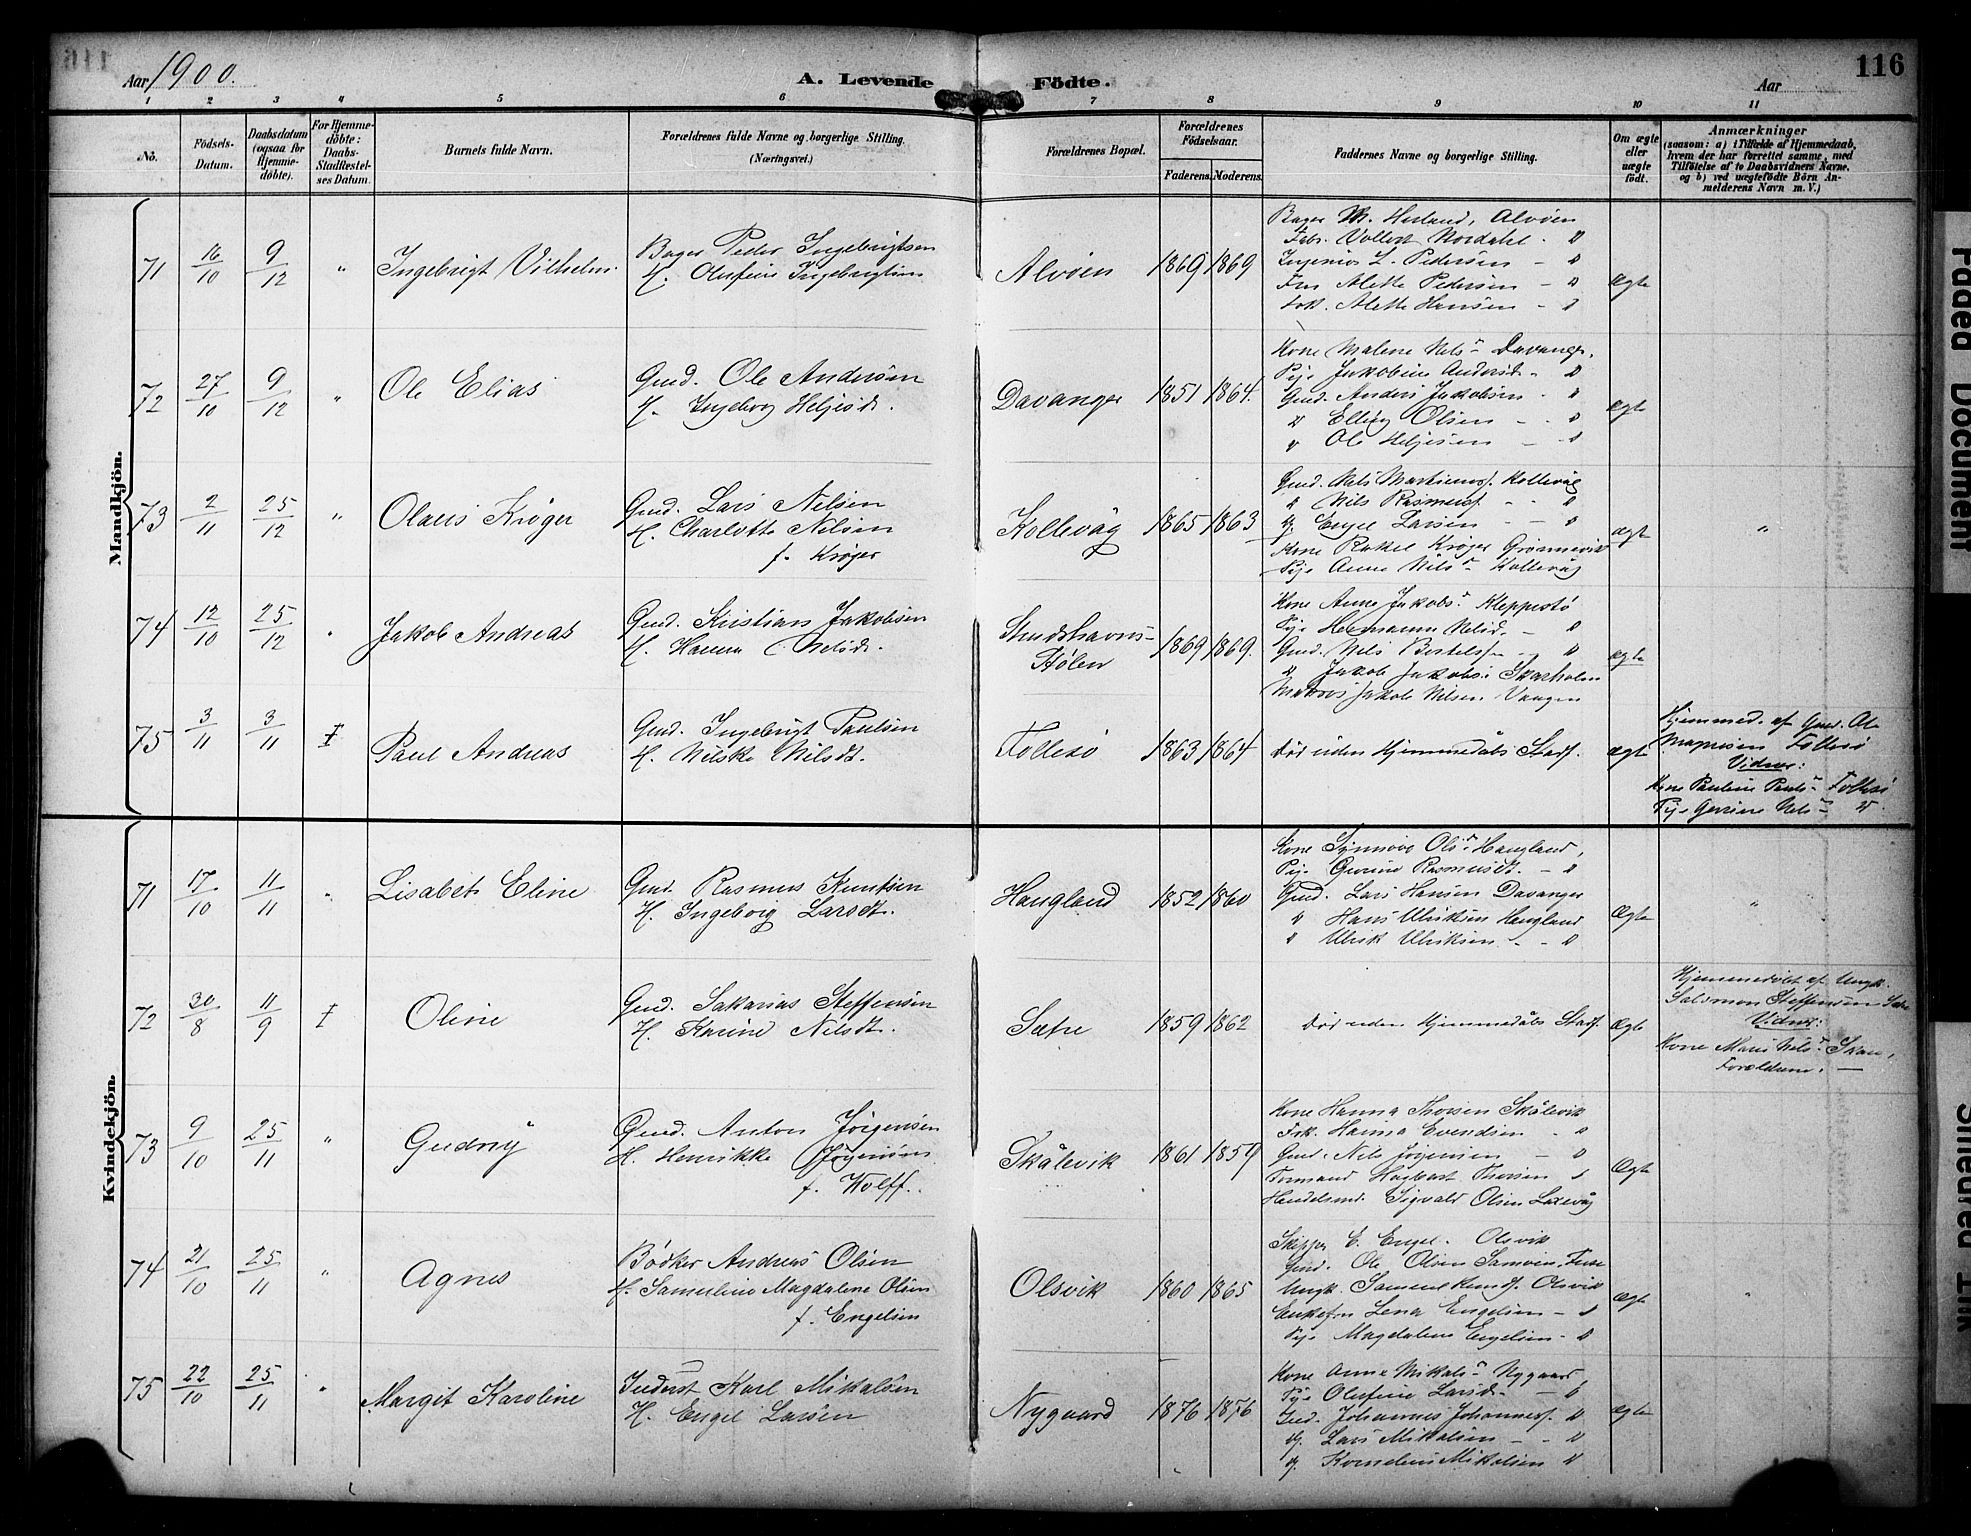 116
Aar 1900.
A. Levende Födte.
Aar
1 2 3 4 5 6 7 8 9 10 11
No.
Födsels-Datum.
Daabsdatum (ogsaa for Hjemme-döbte).
For Hjemme-döbte: Daabs-Stadfæstel-ses Datum.
Barnets fulde Navn.
Forældrenes fulde Navne og borgerlige Stilling.
(Næringsvei.)
Forældrenes Bopæl.
Forældrenes Födselsaar.
Faderens. Moderens.
Faddernes Navne og borgerlige Stilling.
Om ægte eller uægte födt.
Anmærkninger
(saasom: a) i Tilfælde af Hjemmedaab,
hvem der har forrettet samme, med
Tilföielse af to Daabsvidners Navne.
og b) ved uægtefödte Börn An-
melderens Navn m. V.)
Mandkjön.
71 16/10 9/12 " Ingebrigt Vilhelm.
Bager Peder Ingebrigtsen
H. Olufine Ingebrigtsen
Alvöen 1869 1869
Bager M. Herland, Alvöen
Fabr. Vollert Nordahl - "
Ingeniör L. Pedersen - "
Fru Alette Pedersen - "
Frk. Alette Hansen - "
Ægte
72 27/10 9/12 " Ole Elias
Gmd. Ole Andersen
H. Ingeborg Heljesdt.
Davanger 1851 1864.
Kone Malene Nels- Davanger.
Pige Jakobine Andersd. "
Gmd. Anders Jakobsen - "
" Elling Olsen - "
" Ole Heljesen - "
Ægte
73 2/11 25/12 " Olaus Krøger
Gmd. Lars Nilsen
H. Charlotte Nilsen
f. Krøger
Kollevåg 1865 1863
Gmd. Nels Martinusf. Kollevåg
" Nils Rasmusf. - "
Engel Larsen - "
Kone Rakel Krøger Grönnevik
Pige Anne Nils- Kollevåg
ægte "
74 12/10 25/12 " Jakob Andreas
Gmd. Kristian Jakobsen
H. Hanna Nelsdt.
Strudshavns-
Stölen 1869 1869.
Kone Anne Jakobs- Kleppestö
Pige Hermanne Nelsd. - "
Gmd. Nels Bertelsf - "
" Jakob Jakobs. Skarholm
Matros Jakob Nilsen. Vaagen
Ægte
75 3/11 3/11 I Paul Andreas
Gmd. Ingebrigt Paulsen
H. Nilske Nilsdt.
Follesö 1863 1864
Död uden Hjemmedåbs Stadf.
Ægte
Hjemmed. af Gmd. Ole
Magnesen Follesö
Vidner:
Kone Pauline Pauls- Follesö
Pige Gurine Nels- "
Kvindekjön.
71 17/10 11/11 " Lisabet Eline
Gmd. Rasmus Knutsen
H. Ingeborg Larsdt.
Haugland 1852 1860
Kone Synnöve Ols- Haugland,
Pige Gurine Rasmusdt. - "
Gmd. Lars Hansen Davanger
" Hans Ulriksen Haugland
" Ulrik Ulriksen - "
Ægte "
72 30/8 11/9 I Oline
Gmd. Sakarias Steffensen
H. Karine Nilsdt.
Sætre 1859 1862
Död uden Hjemmedåbs Stadf.
Ægte
Hjemmedöbt af Ungk.
Salomon Steffensen Sætre
Vidner:
Kone Maris Nils- Skaar,
Forældrene. -
73 9/10 25/11 " Gudny
Gmd. Anton Jörgensen
H. Henrikke Jörgensen
f. Wolff.
Skålevik 1861 1859
Kone Hanna Thorsen Skålevik
Frk. Hanna Evendsen - "
Gmd. Nils Jörgensen - "
Formand Hagbart Thorsen "
Handelsmd. Sigvald Olsen Laxevåg
Ægte
74 21/10 25/11 " Agnes
Bödker Andreas Olsen
H. Samueline Magdalene Olsen
f. Engelsen
Olsvik 1860 1865
Skipper E. Engel. Olsvik
Gmd. Ole Olsen Samnöen, Fuse
Ungk. Samuel Knudsf. Olsvik
Enkefru Lena Engelsen - "
Pige Magdalene Engelsen - "
Ægte "
75 22/10 25/11 " Margit Karoline
Inderst Karl Mikalsen
H. Engel Larsen
Nygaard 1876 1876
Kone Anna Mikals- Nygaard
Pige Olufine Larsd. - "
Ind. Johannes Johannesf. "
Lars Mikalsen - "
Kornelius Mikalsen "
Ægte